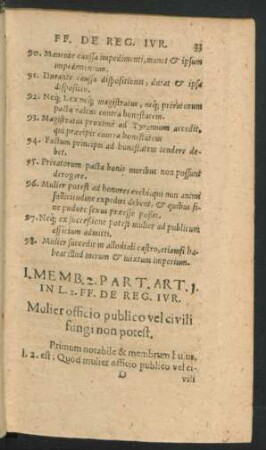 FF. DE REG. IVR. 33
90. Manente caussa impedimenti, manet & ipsum
impedimentum.
91. Durante caussa dispositionis, durat & ipsa
dispositio.
92. Neq; Lex neq; magistratus, neq; privatorum
pacta valent contra honestatem.
93. Magistratus proximè ad Tyrannum accedit,
qui præcipit contra honestatem
94. Factum principis ad honestatem tendere de-
bet.
95. Privatorum pacta bonis moribus non possunt
derogare.
96. Mulier potest ad honores evehi, qui non animi
sollicitudine expediri debent, & quibus si-
ne pudore sexus præesse possit.
97. Neq; ex successione potest mulier ad publicum
officium admitti.
98. Mulier succedit in allodiali castro, etiamsi ha-
beat illud merum & mixtum imperium.
I. MEMB. 2. PART. ART. J.
IN L. 2. FF. DE REG. IVR.
Mulier officio publico vel civili
fungi non potest.
Primum notabile & membrum hujus
l. 2. est: Quod mulier officio publico vel ci-
D vili